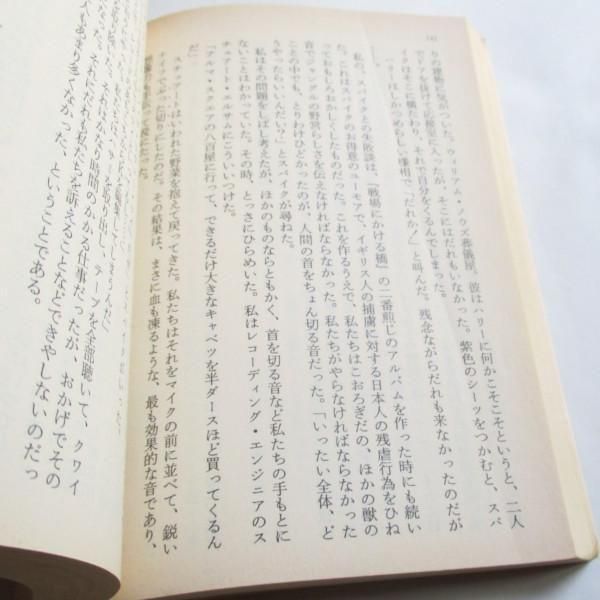 りの建物に気がついた。ウィリアム・ノウズ葬儀屋。彼はハリーに何かこそこそというと、二人
でドアを抜けて応接室に入ったが、そこにはだれもいなかった。紫色のシーツをつかむと、スパ
イクはそこに横たわり、それで自分をくるんでしまった。
ハリーはしかつめらしい様相で、「だれか！」と叫んだ。残念ながらだれも来なかったのだが
私の、スパイクとの失敗談は、『戦場にかける橋』の二番煎じのアルバムを作った時にも続い
た。これはスパイクのお得意のユーモアで、イギリス人の捕虜に対する日本人の残虐行為をひね
ってもしろおかしくしたものだった。これを作るうえで、私たちはこおろぎだの、ほかの獣の
音でジャングルの野営らしさを伝えなければならなかった。私たちがやらなければならなかった
ことの中でも、とりわけひどかったのが、人間の首をちょん切る音だった。「いったい全体、ど
うやったらいいんだい？」とスパイクが尋ねた。
私はその問題をしばし考えたが、ほかのものならともかく、首を切る音など私たちの手もとに
はなかった。その時、とっさにひらめいた。私はレコーディング・エンジニアのス
チュアート・エルサムにこういいつけた。
「アルマ・スクエアの八百屋に行って、できるだけ大きなキャベツを半ダースほど買ってくるん
だ」
スチュアートはいわれた野菜を抱えて戻ってきた。私たちはそれをマイクの前に並べて、鋭い
ナイフでぶった切りにしたのだ。その結果は、まさに血も凍るような、最も効果的な音であり、
テープを取り出し、テープを全部聴いて、クワイ
なった。それはかなり時間のかかる仕事だったが、おかげでその
た。それにだれも私たちを訴えることなどできやしないのだっ
人もあまり多くなかった、ということである。